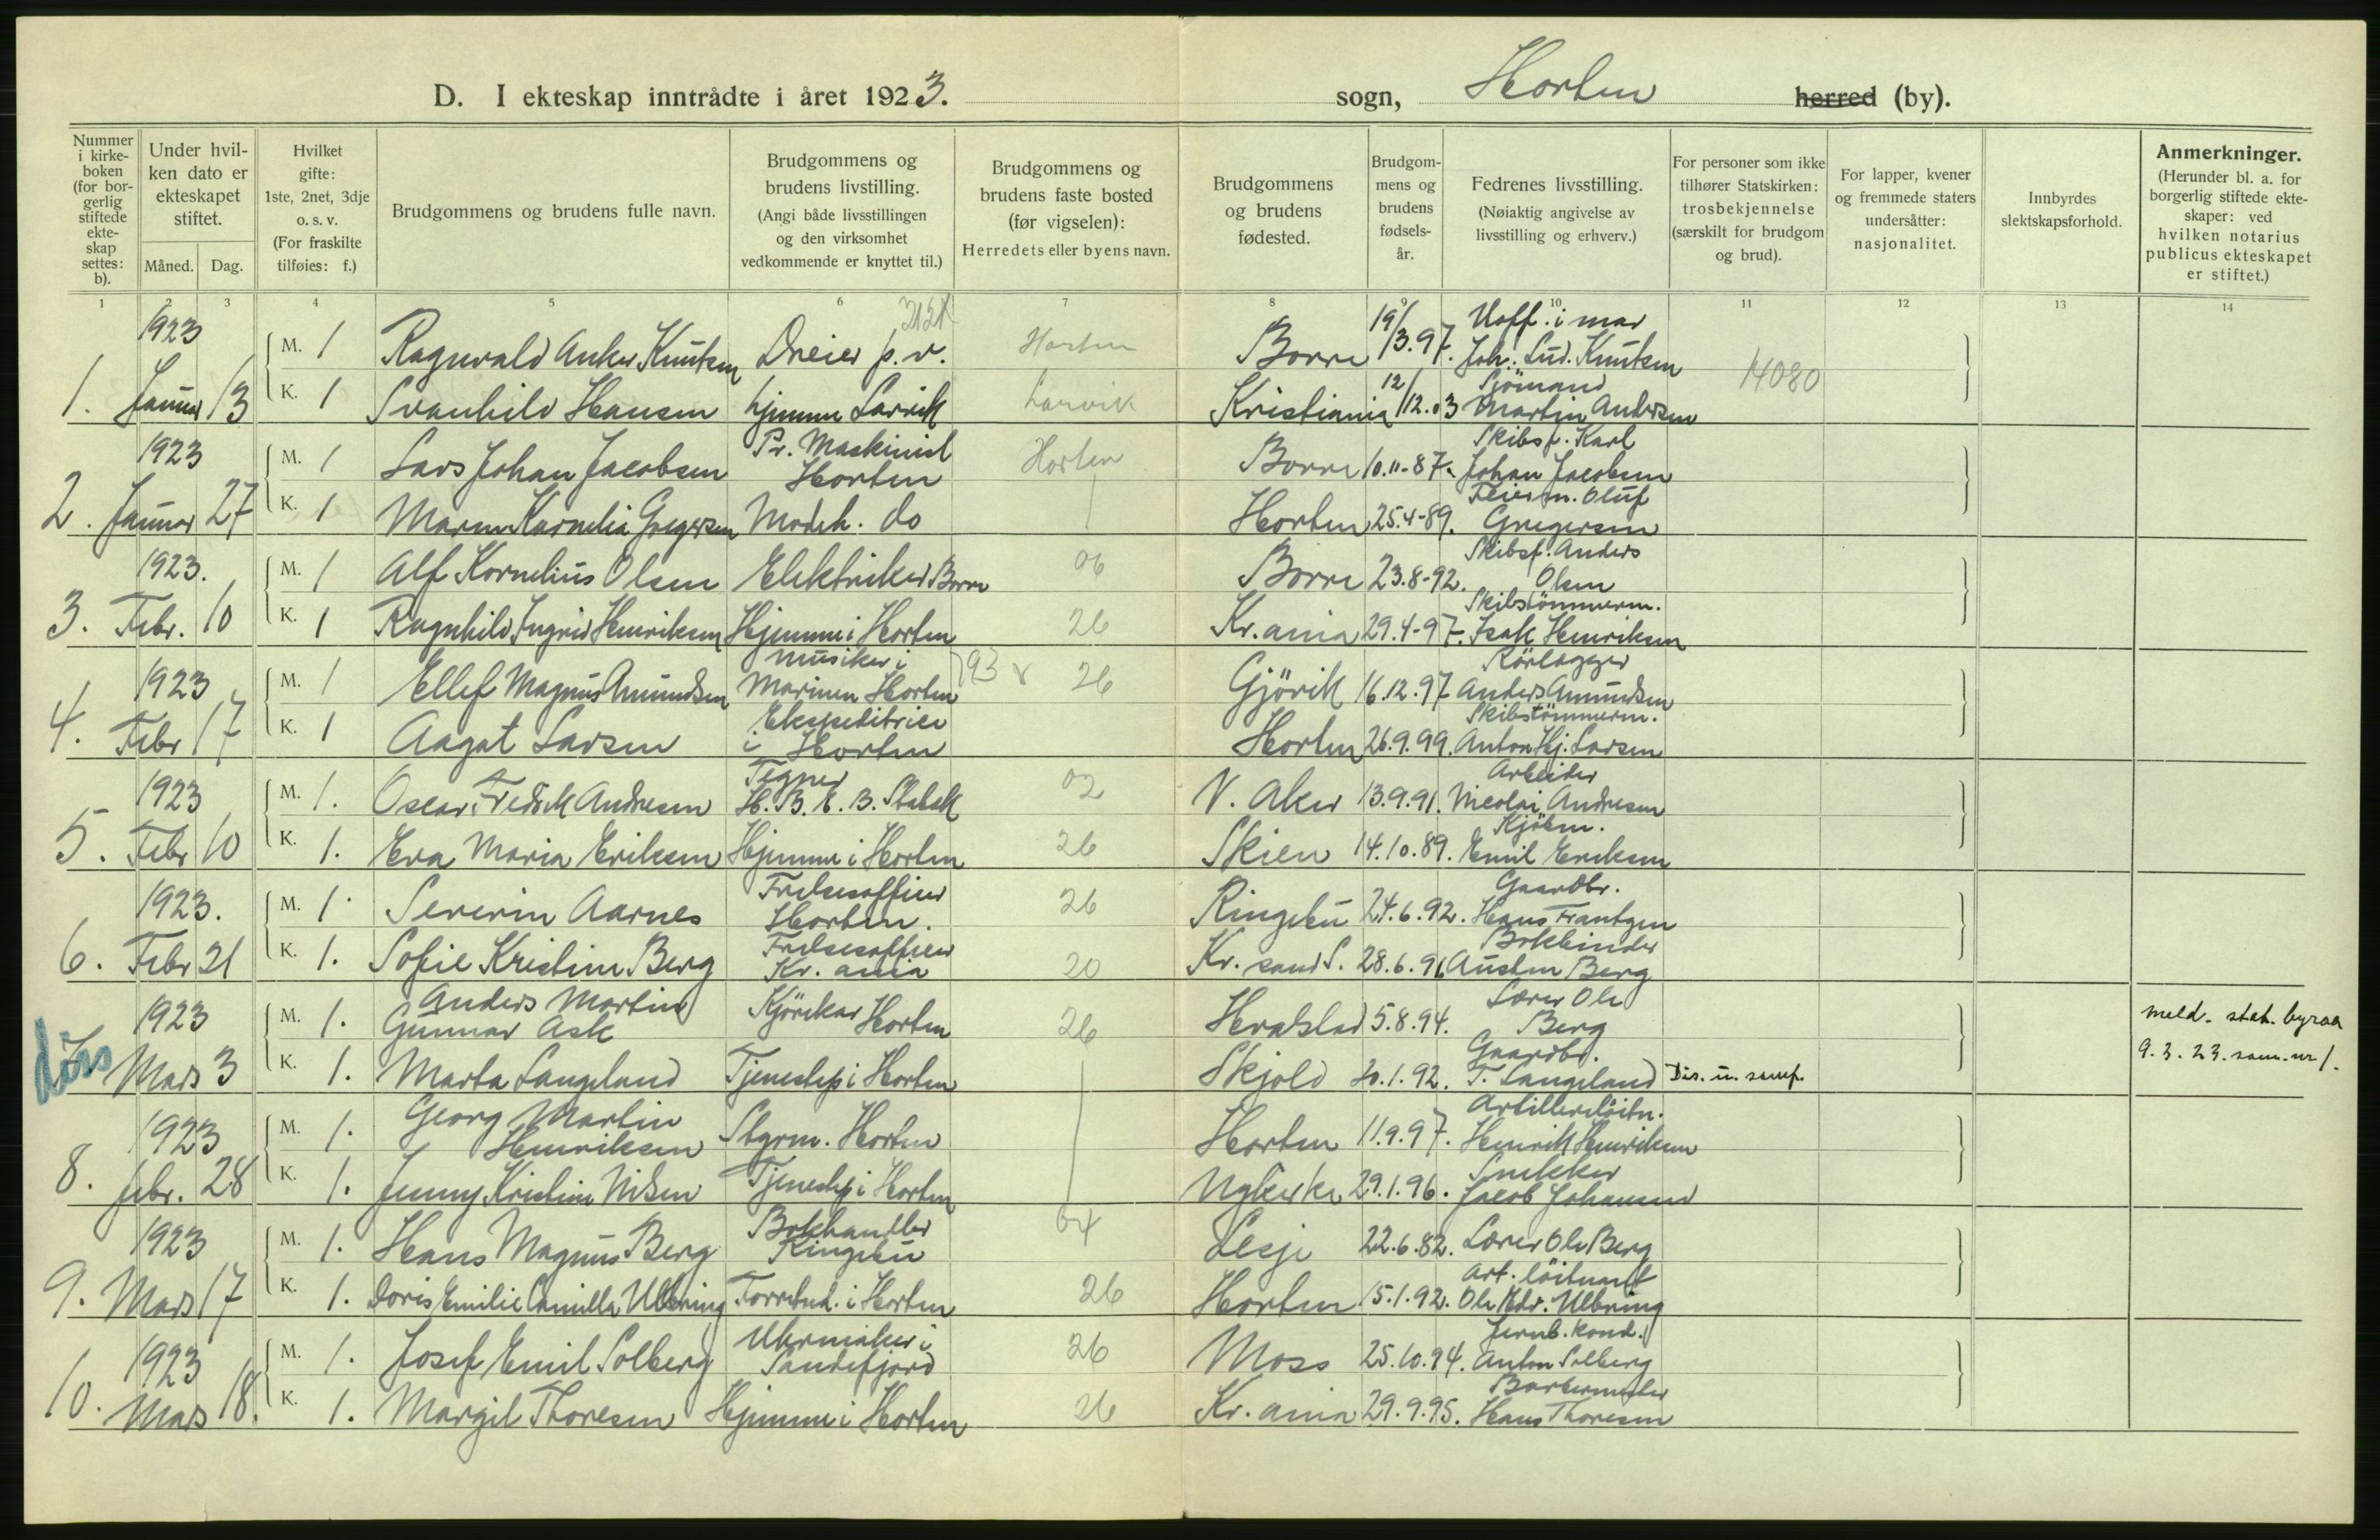 D. I ekteskap inntrådte i året 1923.
sogn, Horten herred (by).
Nummer i kirkeboken (for borgerlig stiftede ekteskap settes: b).
Under hvilken dato er ekteskapet stiftet.
Måned. Dag.
Hvilket gifte: 1ste, 2net, 3dje o. s. v. (For fraskilte tilføies: f.)
Brudgommens og brudens fulle navn.
Brudgommens og brudens livstilling. (Angi både livsstillingen og den virksomhet vedkommende er knyttet til.)
Brudgommens og brudens faste bosted (før vigselen): Herredets eller byens navn.
Brudgommens og brudens fødested.
Brudgommens og brudens fødselsår.
Fedrenes livsstilling. (Nøiaktig angivelse av livsstilling og erhverv.)
For personer som ikke tilhører Statskirken: trosbekjennelse (særskilt for brudgom og brud).
For lapper, kvener og fremmede staters undersåtter: nasjonalitet.
Innbyrdes slektskapsforhold.
Anmerkninger. (Herunder bl. a. for borgerlig stiftede ekteskaper: ved hvilken notarius publicus ekteskapet er stiftet.)
1 2 3 4 5 6 7 8 9 10 11 12 13 14
1923 M. 1 Ragnvald Anker Knutsen Dreier p. v. Horten Borre 19/3.97. Uoff. i mar Joh. Lud. Knutsen 14080
1. Januar 13 K. 1 Svanhild Hansen hjemme Larvik Larvik Kristiania 12/12.03 Sjömand Martin Andersen
1923 M. 1 Lars Johan Jacobsen Pr. Maskinist Horten Horten Borre 10.11-87. Skibsf. Karl Johan Jacobsen
2. Januar 27 K. 1 Maren Kornelia Gregersen Modeh. do Horten 25.4-89. Feierm. Oluf Gregersen
1923. M. 1 Alf Kornelius Olsen Elektriker Borre 06 Borre 23.8-92. Skibsf. Anders Olsen
3. Febr. 10 K. 1 Ragnhild Ingrid Henriksen Hjemme i Horten 26 Kr.ania 29.4-97. Skibstömmerm. Isak Henriksen
1923 M. 1 Ellef Magnus Amundsen Musiker i Marinen Horten 793 26 Gjövik 16.12.97 Rörlægger Anders Amundsen
4. Febr 17 K. 1 Aagot Larsen Ekspeditrice i Horten Horten 26.9.99. Skibstömmerm. Anton Hj. Larsen
1923 M. 1. Oscar Fredrik Andresen Tegner H. B. E. B. Stabæk 02 V. Aker 13.9.91. Arbeider Nicolai Andresen
5. Febr 10 K. 1. Eva Maria Eriksen Hjemme i Horten 26 Skien 14.10.89. Kjöbm. Emil Eriksen
1923. M. 1. Severin Aarnes Frelsesoffiser Horten. 26 Ringebu 24.6.92. Gaardbr. Hans Frantzen
6. Febr 21 K. 1. Sofie Kristine Berg Frelsesoffiser Kr. ania 20 Kr. sand S. 28.6.96 Bokbinder Austen Berg
1923 M. 1. Anders Martin Gunnar Ask Kjörekar Horten 26 5.8.94. Lærer Ole Berg meld. stat. byraa
7. Mars 3 K. 1. Marta Langeland Tjenestep i Horten Skjold 20.1.92. Gaardbr. T. Langeland Dis. u. samf. 9.3.23. sam. nr 1.
1923 M. 1. Georg Martin Henriksen Styrm. Horten Horten 11.9.97. Artilleriløitn. Henrik Henriksen
8. febr. 28 K. 1. Jenny Kristine Nilsen Tjenestep i Horten Nykirke 29.1.96. Snekker Jacob Johansen
1923 M. 1. Hans Magnus Berg Bokhandler Ringebu 04 Lesje 22.6.82. Lærer Ole Berg
9. Mars 17 K. 1. Doris Emilie Camilla Ulbring Forretnd. i Horten 26 Horten 15.1.92. Art. löitnant Ole Edv. Ulbring
1923 M. 1. Josef Emil Solberg Uhrmaker i Sandefjord 26 Moss 25.10.94. Jernb. kond. Anton Solberg
10. Mars 18. K. 1. Margit Thoresen Hjemme i Horten 26 Kr. ania 29.9.95. Barbermester Hans Thoresen